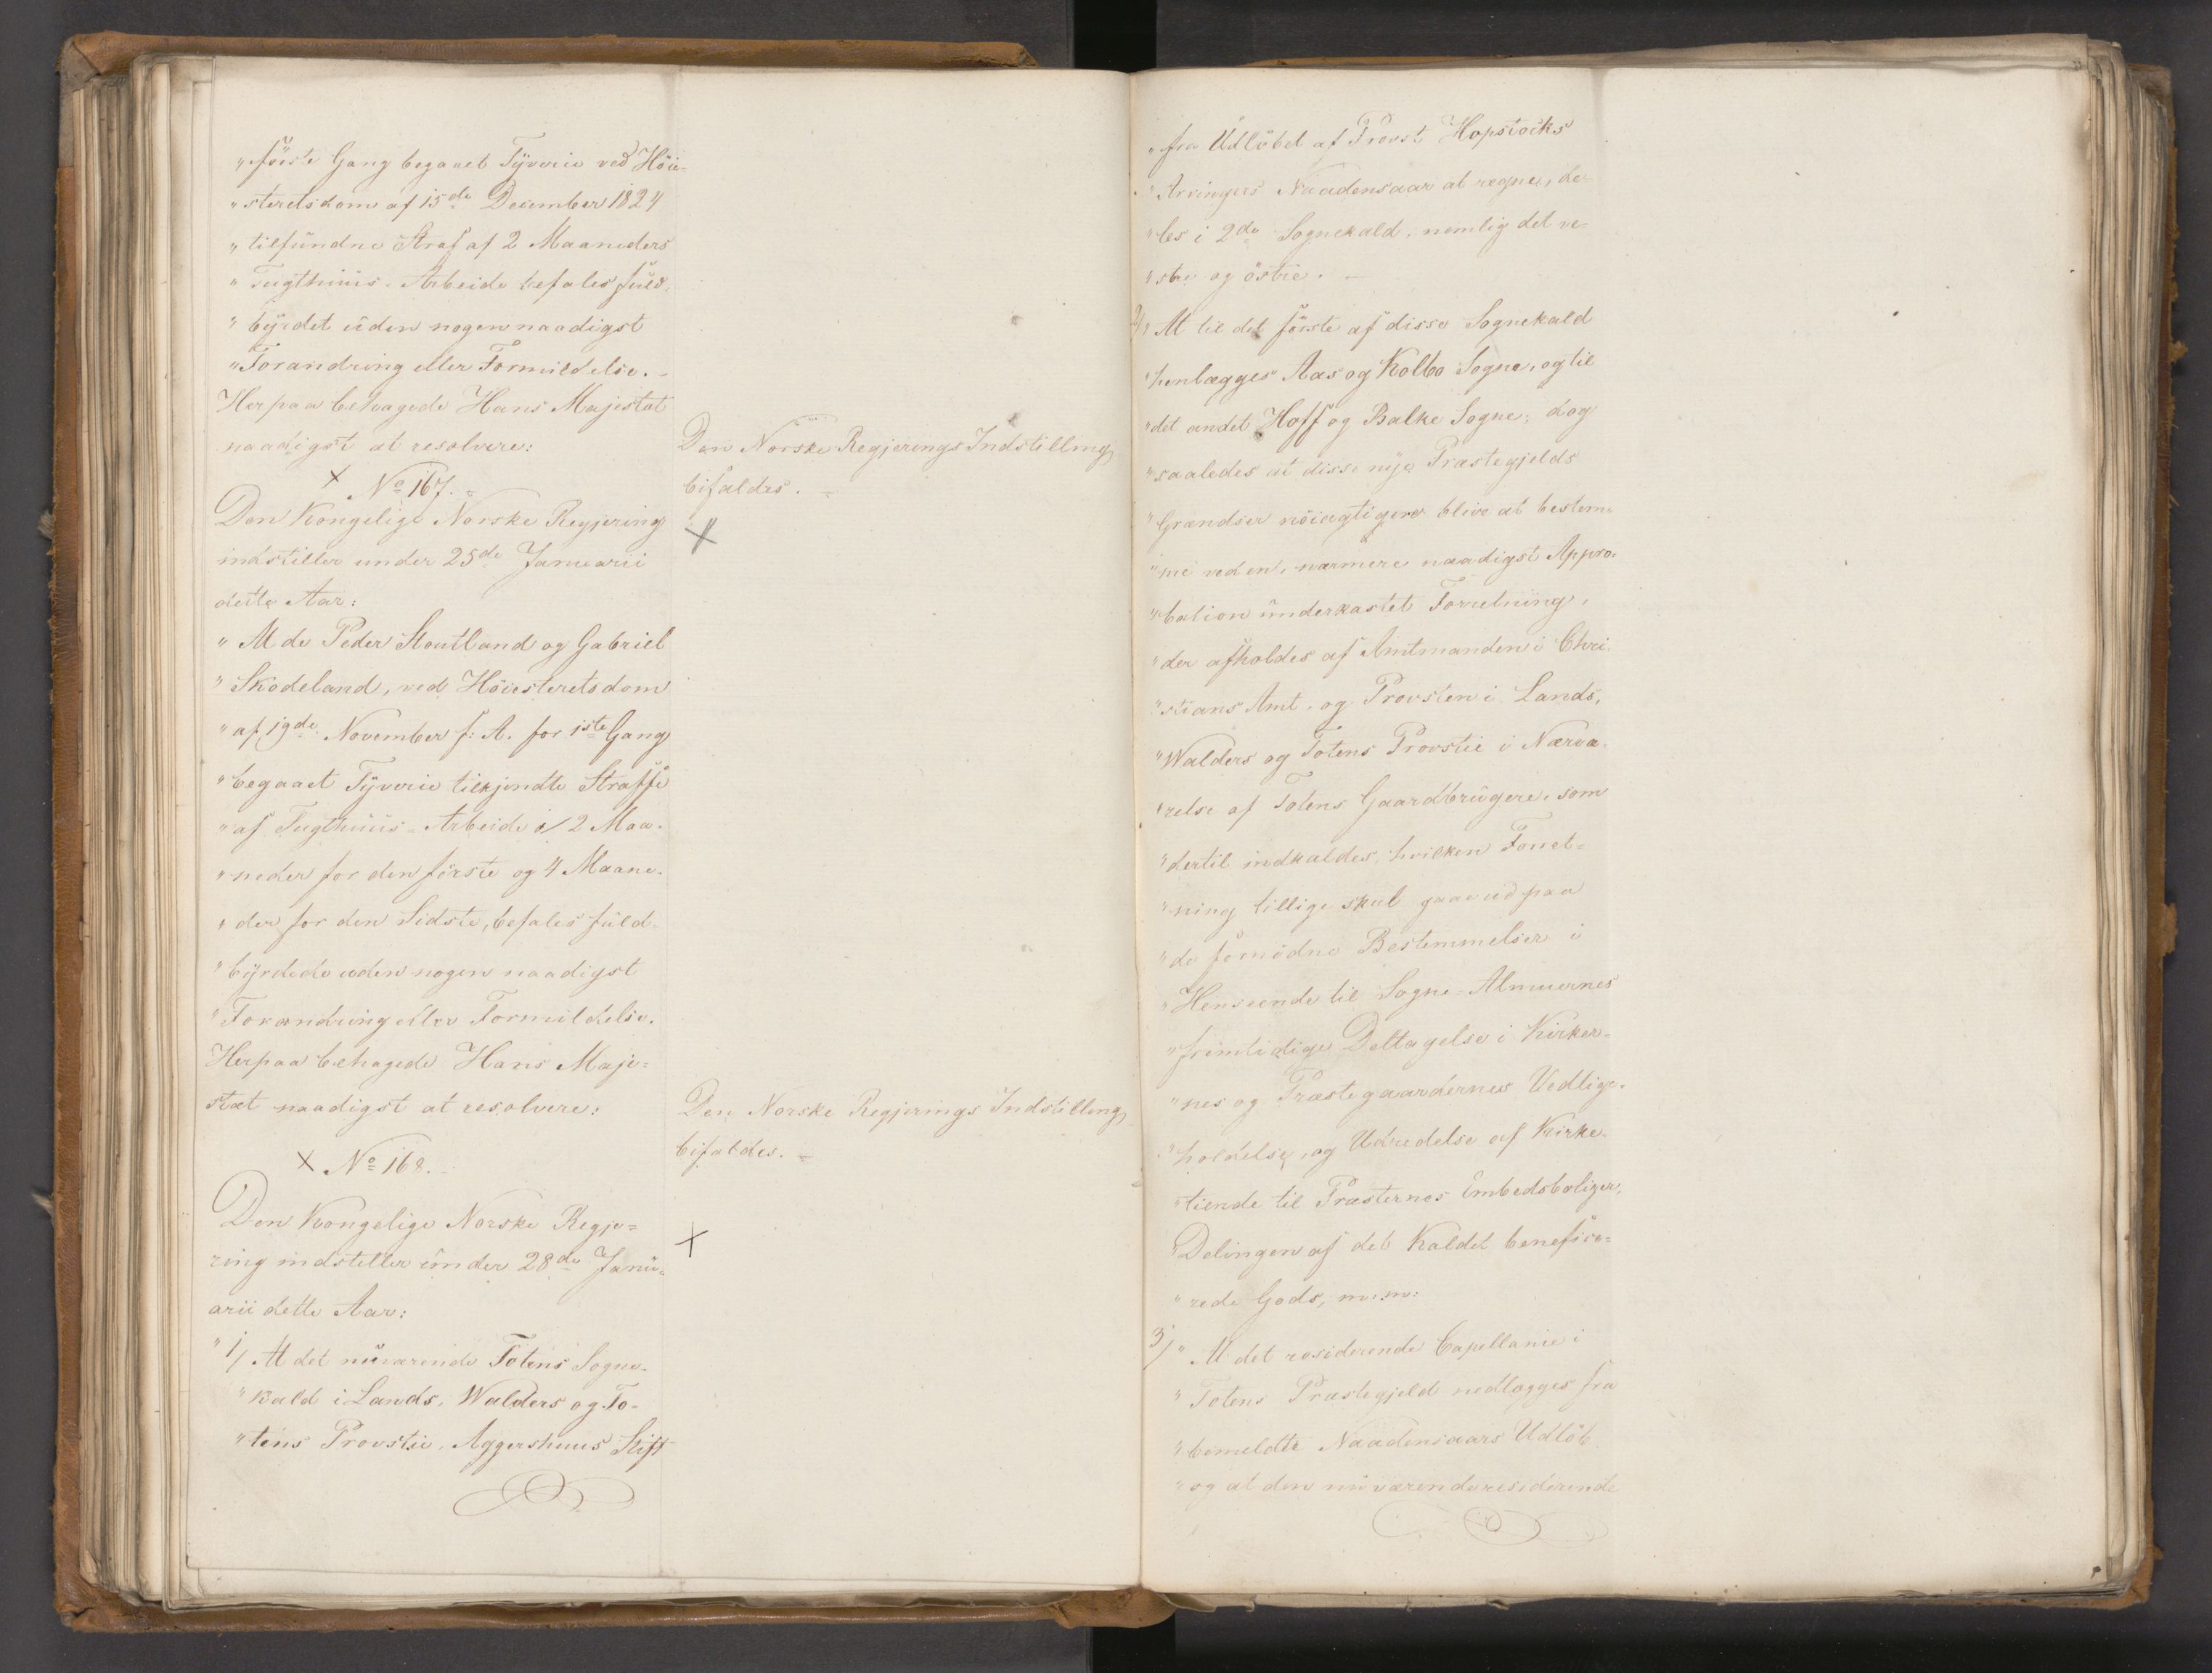 "förste Gang begaaet Tÿverie ved Höie-
"steretsdom af 15de December 1824
"tilfundne Straf af 2 Maaneders
"Tugthuus-Arbeide befales fuld-
"bÿrdet uden nogen naadigst
"Forandring eller Formildelse.
Herpaa behagede Hans Majestæt
naadigst at resolvere:
Den Norske Regjerings Indstilling
bifaldes.
No 167.
Den Kongelige Norske Regjering
indstiller under 25de Januarii
dette Aar:
"At de Peder Stoutland og Gabriel
"Skodeland, ved Höiesteretsdom
"af 19de November f: A. for 1ste Gang
"begaaet Tÿverie tilkjendte Straffe
"af Tugthuus-Arbeide i 2 Maa-
"neder for den förste og 4 Maane-
"der for den Sidste, befales fuld-
"bÿrdede uden nogen naadigst
"Forandring eller Formildelse.
Herpaa behagede Hans Maje=
stæt naadigst at resolvere:
Den Norske Regjerings Indstilling
bifaldes.
No 168.
Den Kongelige Norske Regje=
ring indstiller under 28de Janu-
arii dette Aar:
"1/ At det nuværende Totens Sogne-
"kald i Lands, Walders og To-
"tens Provstie, Aggershuus Stift
"fra Udlöbet af Provst Hopstocks
"Arvingers Naadensaar at regne, de-
"les i 2de Sognekald, nemlig det ve-
"stre og östre.
2/ "At til det förste af disse Sognekald
"henlægges Aas og Kolbo Sogne, og til
"det andet Hoff og Balke Sogne; dog
"saaledes at disse nÿe Præstegjelds
"Grændser nöiagtigere blive at bestem-
"me ved en, nærmere naadigst Appro-
"bation underkastet Forretning,
"der afholdes af Amtmanden i Chri-
"stians Amt, og Provsten i Lands,
"Walders og Totens Provstie i Nærvæ-
"relse af Totens Gaardbrugere, som
"dertil indkaldes, hvilken Forret-
"ning tillige skal gaae ud paa
"de fornödne Bestemmelser i
"Henseende til Sogne-Almuernes
"fremtidige Deltagelse i Kirker-
"nes og Præstegaardernes Vedlige-
"holdelse, og Udredelse af Kirke-
"tiende til Præsternes Embedsboliger,
"Delingen af det Kaldet benefice=
"rede Gods, m:m:
3/ "At det residerende Capellanie i
"Totens Præstegjeld nedlægges fra
"bemeldte Naadensaars Udlöb
"og at den nuværende residerende